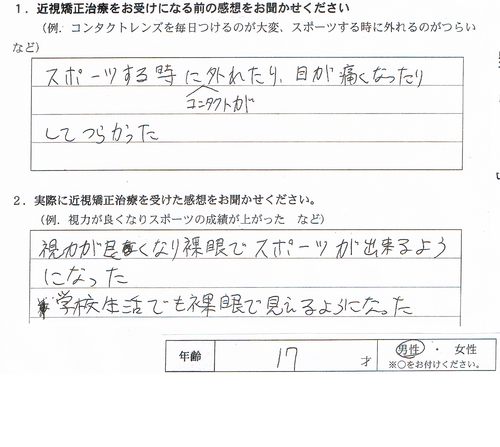 １．近視矯正治療をお受けになる前の感想をお聞かせください
（例．コンタクトレンズを毎日つけるのが大変、スポーツする時に外れるのがつらい
など）
スポーツする時に外れたり、目が痛くなったり
コンタクトが
してつらかった
２．実際に近視矯正治療を受けた感想をお聞かせください。
（例．視力が良くなりスポーツの成績が上がった　など）
視力が良くなり裸眼でスポーツが出来るよう
になった
学校生活でも裸眼で見えるようになった
年齢　17　才　男性　・　女性
※○をお付けください。